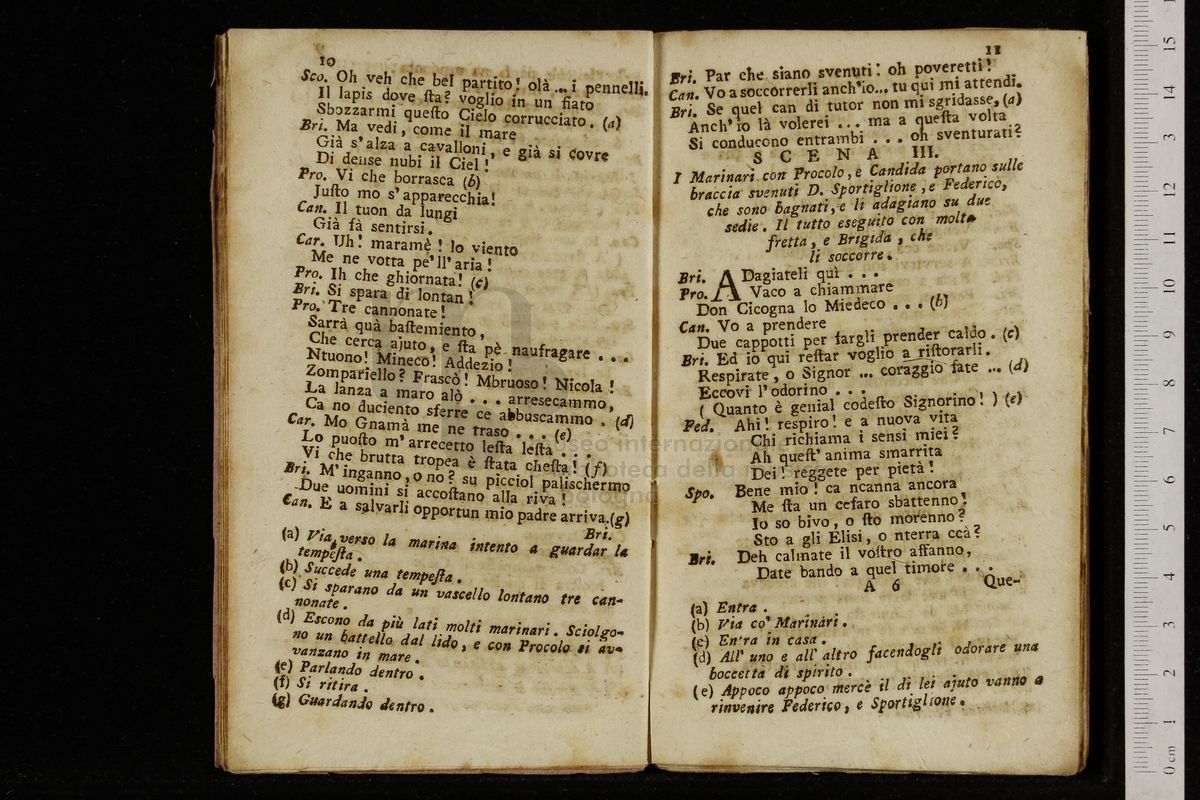 10
Sco. Oh veh che bel partito! olà ... i pennelli.
Il lapis dove ſta? voglio in un fiato
Sbozzarmi queſto Cielo corrucciato. (a)
Bri. Ma vedi, come il mare
Già s'alza a cavalloni, e già si covre
Di dense nubi il Ciel!
Pro. Vi che borrasca (b)
Juſto mo s'apparecchia!
Can. Il tuon da lungi
Già fà sentirsi.
Car. Uh! maramè! lo viento
Me ne votta pe'll'aria!
Pro. Ih che ghiornata! (c)
Bri. Si spara di lontan!
Pro. Tre cannonate!
Sarrà quà baſtemiento,
Che cerca ajuto, e ſta pè naufragare ...
Ntuono! Mineco! Addezio!
Zompariello? Frascò! Mbruoso! Nicola!
La lanza a maro alò ... arresecammo,
Ca no duciento sferre ce abbuscammo. (d)
Car. Mo Gnamà me ne traso ... (e)
Lo puoſto m'arrecetto leſta leſta ...
Vi che brutta tropea è ſtata cheſta! (f)
Bri. M'inganno, o no? su picciol palischermo
Due uomini si accoſtano alla riva!
Can. E a salvarli opportun mio padre arriva. (g)
Bri.
(a) Via verso la marina intento a guardar la
tempeſta.
(b) Succede una tempeſta.
(c) Si sparano da un vascello lontano tre can-
nonate.
(d) Escono da più lati molti marinari. Sciolgo-
no un battello dal lido, e con Procolo si av-
vanzano in mare.
(e) Parlando dentro.
(f) Si ritira.
(g) Guardando dentro.
11
Bri. Par che siano svenuti! oh poveretti!
Can. Vo a soccorrerli anch'io... tu qui mi attendi.
Bri. Se quel can di tutor non mi sgridasse, (a)
Anch'io là volerei ... ma a queſta volta
Si conducono entrambi ... oh sventurati?
SCENA III.
I Marinari con Procolo, e Candida portano sulle
braccia svenuti D. Sportiglione, e Federico,
che sono bagnati, e li adagiano su due
sedie. Il tutto eseguito con molta
fretta, e Brigida, che
li soccorre.
Bri. ADagiateli quì ...
Pro. Vaco a chiammare
Don Cicogna lo Miedeco ... (b)
Can. Vo a prendere
Due cappotti per fargli prender caldo. (c)
Bri. Ed io qui reſtar voglio a riſtorarli.
Respirate, o Signor ... coraggio fate ... (d)
Eccovi l'odorino ...
( Quanto è genial codeſto Signorino! ) (e)
Fed. Ahi! respiro! e a nuova vita
Chi richiama i sensi miei?
Ah queſt'anima smarrita
Dei! reggete per pietà!
Spo. Bene mio! ca ncanna ancora
Me ſta un cefaro sbattenno!
Io so bivo, o ſto morenno?
Sto a gli Elisi, o nterra ccà?
Bri. Deh calmate il voſtro affanno,
Date bando a quel timore ...
A 6
Que-
(a) Entra.
(b) Via co' Marinari.
(c) Entra in casa.
(d) All' uno e all' altro facendogli odorare una
boccetta di spirito.
(e) Appoco appoco mercè il di lei ajuto vanno a
rinvenire Federico, e Sportiglione.